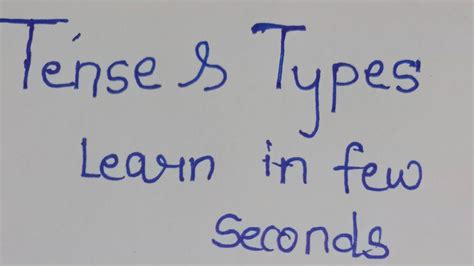 Tense & Types
Learn in few
Seconds